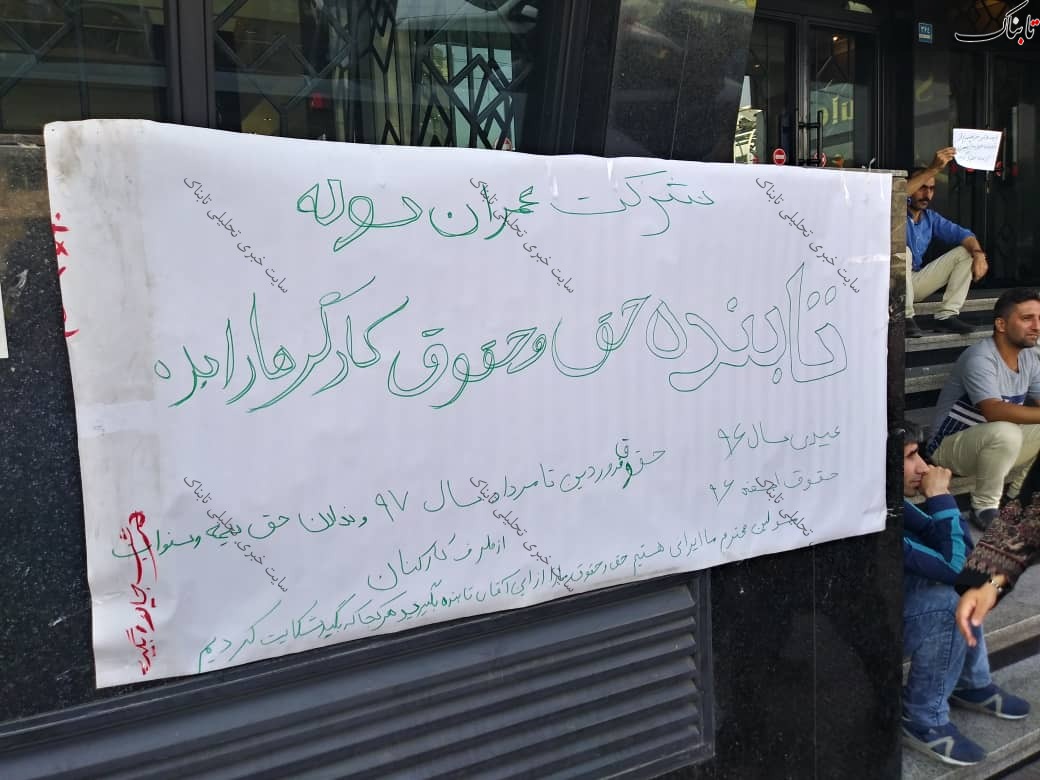 تابناک
شرکت عمران سوله
تابنده حق و حقوق کارگرها را بده
عیدی سال ۹۶
حقوق اسفند ۹۶
حقوق فروردین تا مرداد سال ۹۷ و ندادن حق بیمه و سنوات
از طرف کارکنان
مسئولین محترم ما ایرانی هستیم حق و حقوق ما را از این آقای تابنده بگیرید هر کجا که بگید شکایت کردیم
سایت خبری تحلیلی تابناک
سایت خبری تحلیلی تابناک
سایت خبری تحلیلی تابناک
سایت خبری تحلیلی تابناک
سایت خبری تحلیلی تابناک